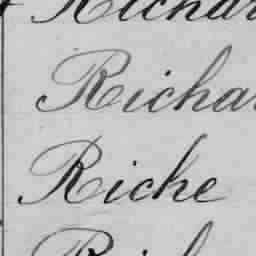 Richar
Richar
Riche